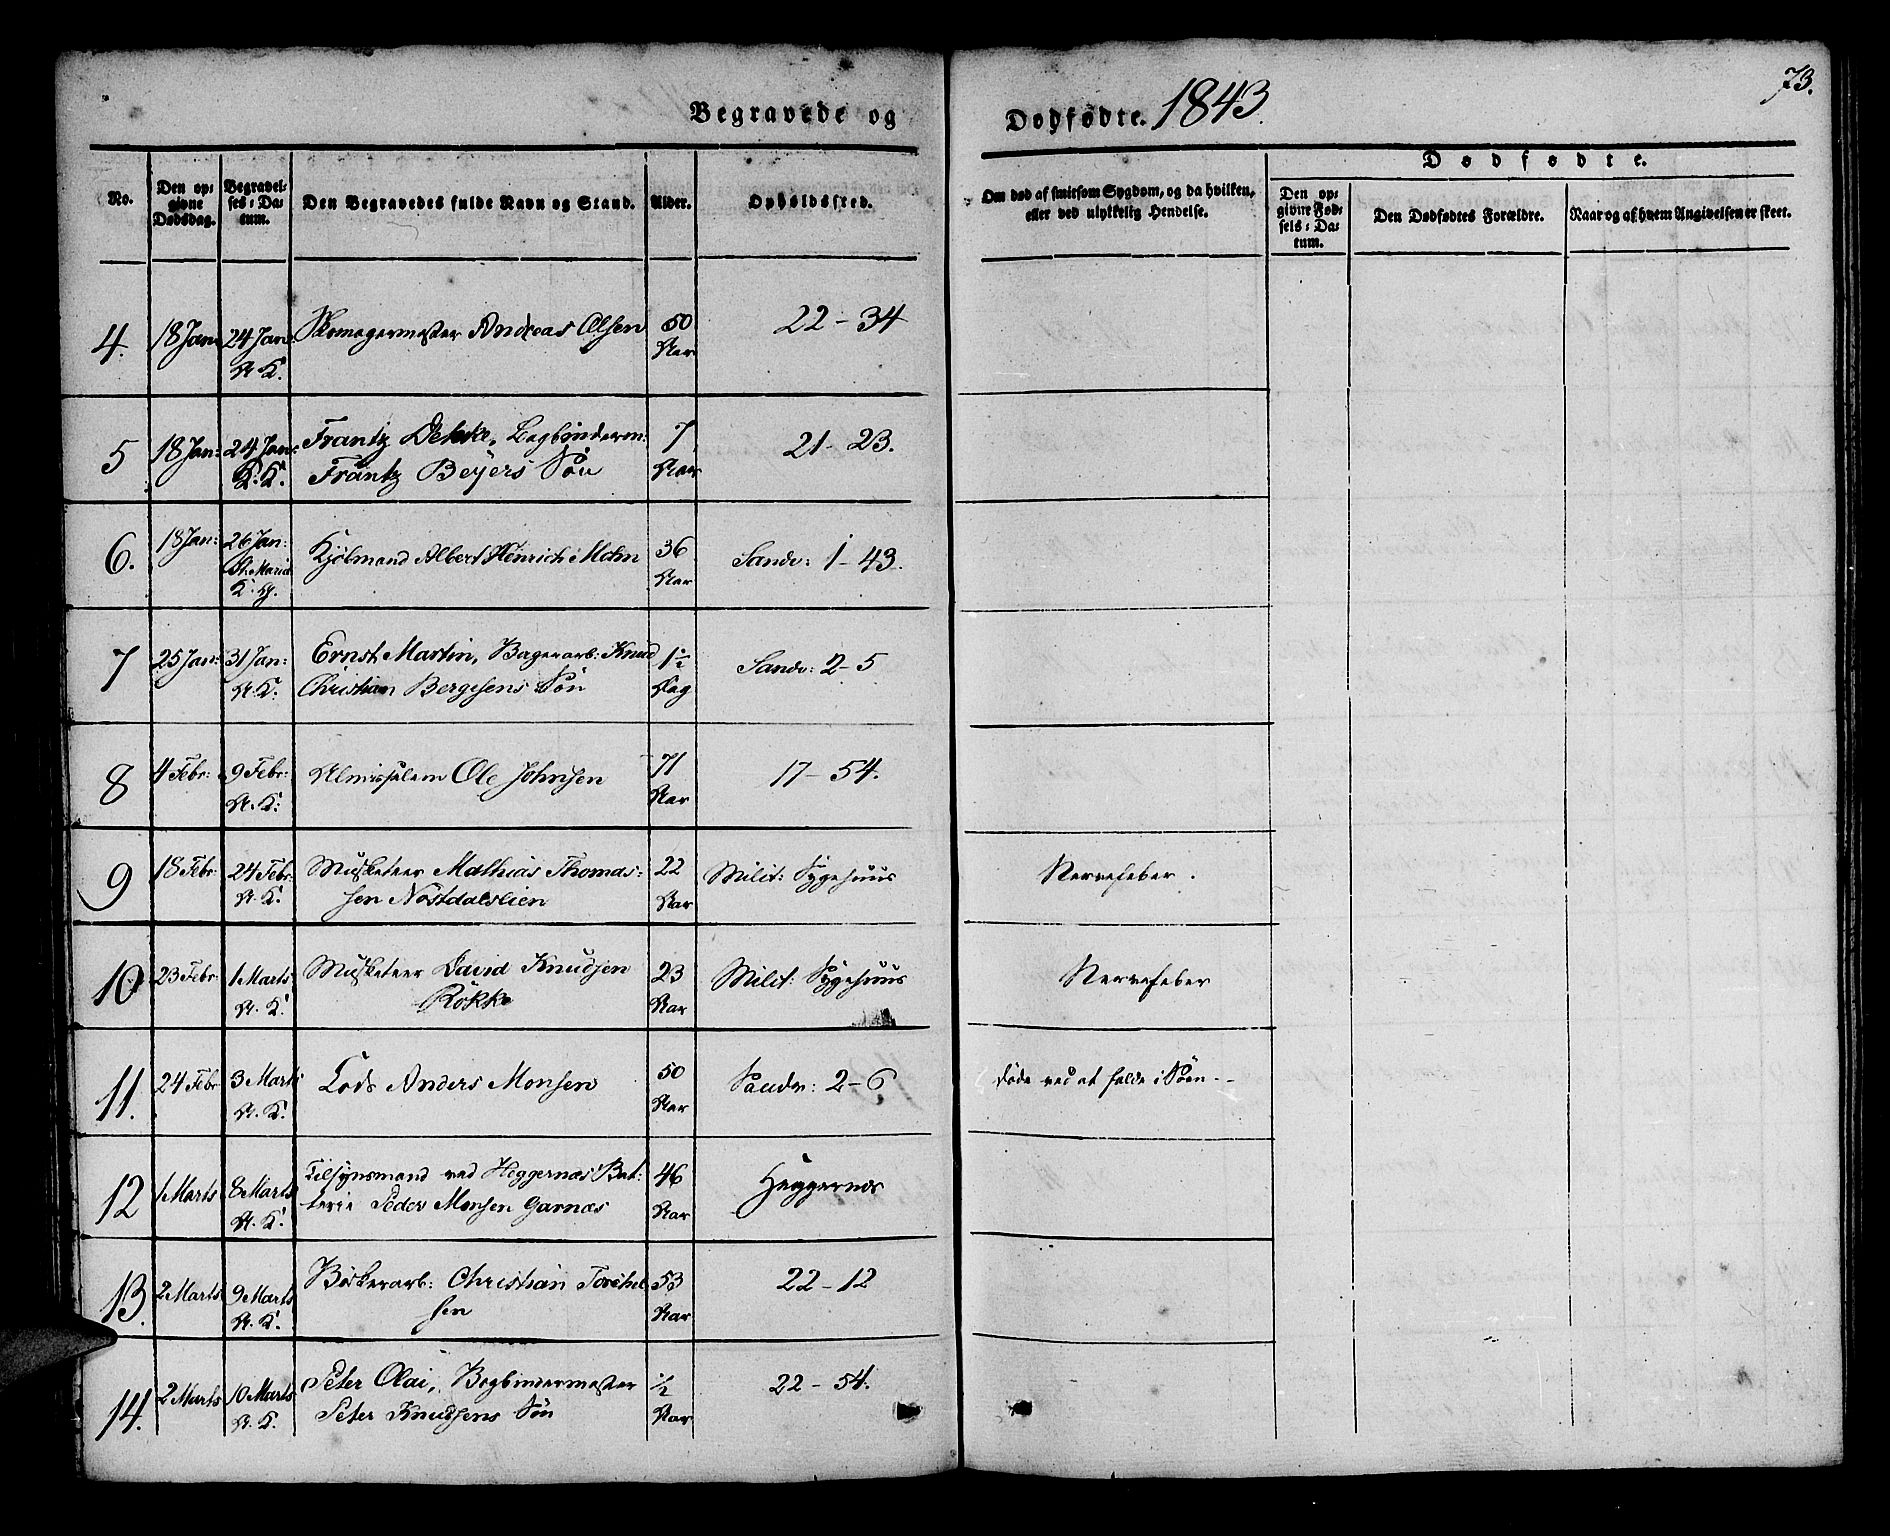 73.
Begravede og Dødfødte. 1843.
No.
Den opgivne Dødsdag.
Begravelses-Datum.
Den Begravedes fulde Navn og Stand.
Alder.
Opholdssted.
Om død af smitsom Sygdom, og da hvilken, eller ved ulykkelig Hendelse.
Dødfødte.
Den opgivne Fødsels-Datum.
Den Dødfødtes Forældre.
Naar og af hvem Angivelsen er skeet.
4. 18 Jan: 24 Jan: Skomagermester Andreas Olsen 50 22 - 34
N. K. Aar
5 18 Jan: 24 Jan: Frantz Dehnke, Bogbinderm: 7 21 - 23.
K. K. Frantz Beyers Søn Aar
6. 18 Jan: 26 Jan: Kjølmand Albert Hinrich Mohn 36 Sandv: 1 - 43.
St. Maria Aar
K. G.
7 25 Jan: 31 Jan: Ernst Martin, Bagerarb: Knud 1½ Sandv: 2 - 5
N. K. Christian Bergesens Søn Dag
8 4 Febr: 9 Febr: Almisselem Ole Johnsen 71 17 - 54.
N. K. Aar
9 18 Febr: 24 Febr: Musketeer Mathias Thomas- 22 Milit: Sygehuus Nervefeber.
N. K. sen Nöstdalslien Aar
10 23 Febr: 1 Marts Musketeer David Knudsen 23 Milit: Sygehuus Nervefeber
N. K. Rökke Aar
11. 24 Febr 3 Marts Lods Anders Monsen 50 Sandv: 2 - 6 døde ved at falde i Søen - -
N. K. Aar
12 1 Marts 8 Marts Tilsynsmand ved Heggernæs Bat- 46 Heggernæs
N. K. terie Peder Monsen Garnæs Aar
13. 2 Marts 9 Marts Bødkerarb: Christian Torchel 53 22 - 12
N. K. sen Aar
14. 2 Marts 10 Marts Peter Olai, Bogbindermester ½ 22 - 54.
N. K. Peter Knudsens Søn Aar